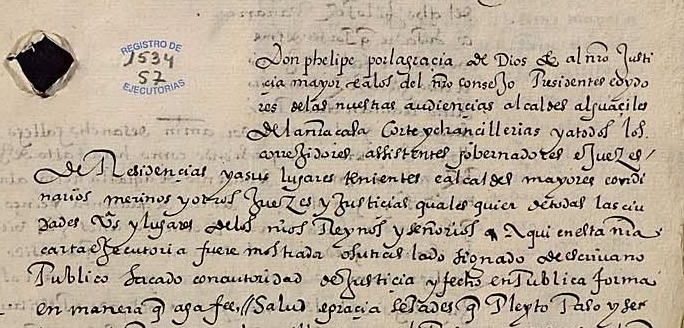 REGISTRO DE
1534
57
EJECUTORIAS
Don phelipe por la gracia de Dios & al nro Justi
cia mayor e a los del nro consejo Presidentes e oydo
res de las nuestras audiencias alcaldes alguaciles
de la nra casa Corte y chancillerias y a todos los
corregidores assistentes gobernadores e Juezes
de Residencias y a sus lugares tenientes e alcaldes mayores e ordi
narios merinos y otros Juezes y Justicias quales quier de todas las ciu
dades Vs y lugares de los nros Reynos y señorios A quien esta nra
carta executoria fuere mostrada o su traslado signado de escrivano
Publico sacado con autoridad de Justicia y fecho en Publica forma
en manera q haga fee // Salud e gracia sepades q Pleyto Paso y se